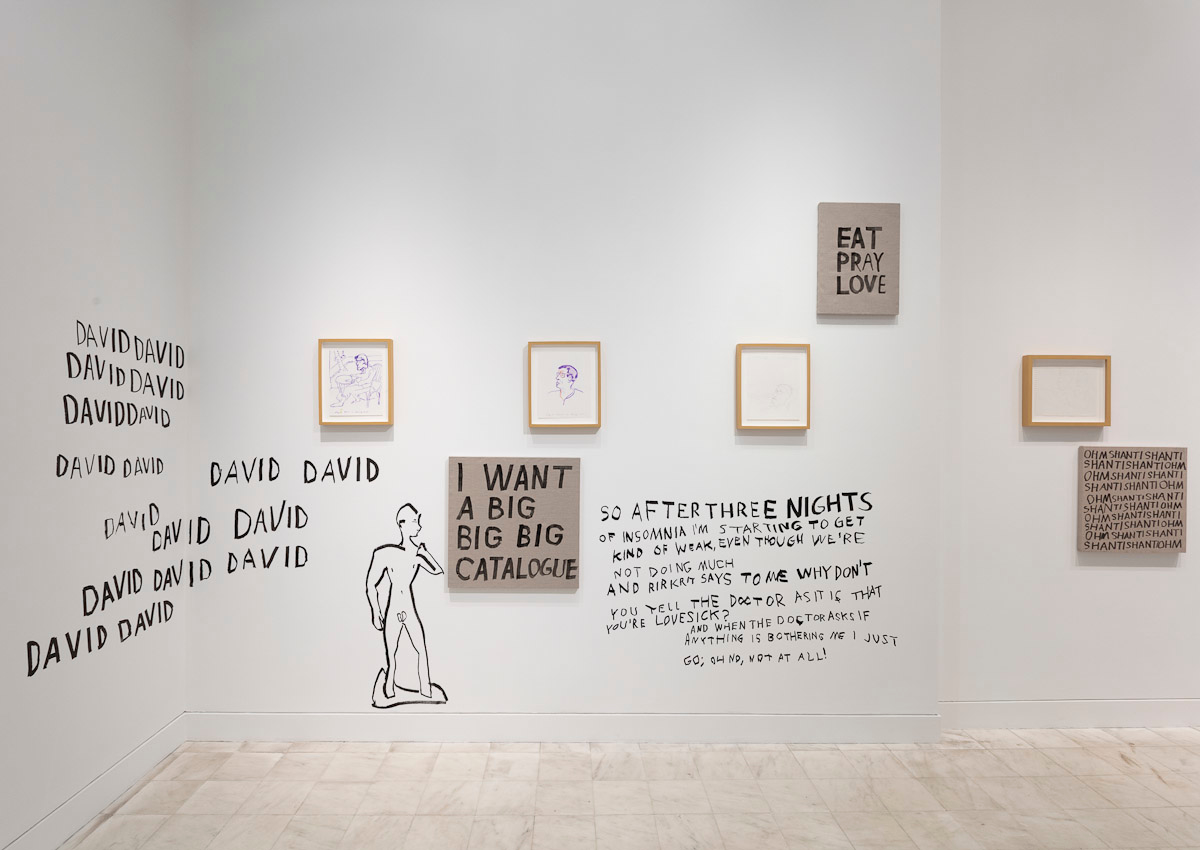 DAVID DAVID
DAVID DAVID
DAVIDDAVID
DAVID DAVID
DAVID DAVID
DAVID
DAVID DAVID
DAVID DAVID DAVID
DAVID DAVID
I WANT
A BIG
BIG BIG
CATALOGUE
SO AFTER THREE NIGHTS
OF INSOMNIA I'M STARTING TO GET
KIND OF WEAK, EVEN THOUGH WE'RE
NOT DOING MUCH
AND RIRKRIT SAYS TO ME WHY DON'T
YOU TELL THE DOCTOR AS IT IS THAT
YOU'RE LOVESICK?
AND WHEN THE DOCTOR ASKS IF
ANYTHING IS BOTHERING ME I JUST
GO; OH NO, NOT AT ALL!
EAT
PRAY
LOVE
OHMSHANTISHANTI
SHANTISHANTIOHM
OHMSHANTISHANTI
SHANTISHANTIOHM
OHMSHANTISHANTI
SHANTISHANTIOHM
OHMSHANTISHANTI
SHANTISHANTIOHM
OHMSHANTISHANTI
SHANTISHANTIOHM